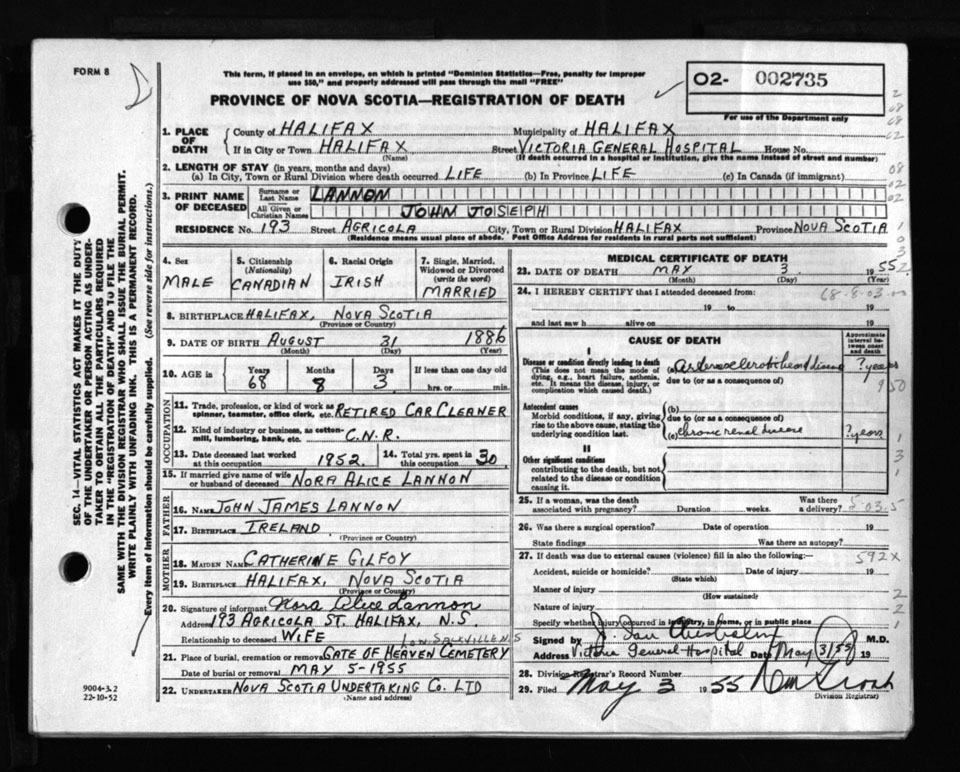 FORM 8
This form, if placed in an envelope, on which is printed "Dominion Statistics—Free, penalty for improper
use $50," and properly addressed will pass through the mail "FREE"
02- 002735
PROVINCE OF NOVA SCOTIA—REGISTRATION OF DEATH
For use of the Department only
1. PLACE OF DEATH County of HALIFAX Municipality of HALIFAX
If in City or Town HALIFAX Street VICTORIA GENERAL HOSPITAL House No.
(Name) (If death occurred in a hospital or institution, give the name instead of street and number)
2. LENGTH OF STAY (in years, months and days)
(a) In City, Town or Rural Division where death occurred LIFE (b) In Province LIFE (c) In Canada (if immigrant)
3. PRINT NAME OF DECEASED Surname or Last Name LANNON
All Given or Christian Names JOHN JOSEPH
RESIDENCE No. 193 Street AGRICOLA City, Town or Rural Division HALIFAX Province NOVA SCOTIA
(Residence means usual place of abode. Post Office Address for residents in rural parts not sufficient)
4. Sex MALE
5. Citizenship (Nationality) CANADIAN
6. Racial Origin IRISH
7. Single, Married, Widowed or Divorced (write the word) MARRIED
8. BIRTHPLACE HALIFAX, NOVA SCOTIA
(Province or Country)
9. DATE OF BIRTH AUGUST 31 1886
(Month) (Day) (Year)
10. AGE in Years 68 Months 8 Days 3 If less than one day old
hrs. or min.
OCCUPATION
11. Trade, profession, or kind of work as
spinner, teamster, office clerk, etc. RETIRED CAR CLEANER
12. Kind of industry or business, as cotton-
mill, lumbering, bank, etc. C.N.R.
13. Date deceased last worked
at this occupation 1952.
14. Total yrs. spent in
this occupation 30
15. If married give name of wife
or husband of deceased NORA ALICE LANNON
FATHER
16. Name JOHN JAMES LANNON
17. Birthplace IRELAND
(Province or Country)
MOTHER
18. Maiden Name CATHERINE GILFOY
19. Birthplace HALIFAX, NOVA SCOTIA
(Province or Country)
20. Signature of informant Nora Alice Lannon
Address 193 AGRICOLA ST. HALIFAX, N.S.
Relationship to deceased WIFE
LOW. SACKVILLE N.S
21. Place of burial, cremation or removal GATE OF HEAVEN CEMETERY
Date of burial or removal MAY 5-1955
22. UNDERTAKER NOVA SCOTIA UNDERTAKING CO. LTD
(Name and address)
MEDICAL CERTIFICATE OF DEATH
23. DATE OF DEATH MAY 3 1955
(Month) (Day) (Year)
24. I HEREBY CERTIFY that I attended deceased from:
19 to 19
and last saw h alive on 19
CAUSE OF DEATH
Approximate interval between onset and death
I
Disease or condition directly leading to death
(This does not mean the mode of
dying, e.g., heart failure, asthenia,
etc. It means the disease, injury, or
complication which caused death.)
(a) Arteriosclerotic heart disease ? years
due to (or as a consequence of)
Antecedent causes
Morbid conditions, if any, giving
rise to the above cause, stating the
underlying condition last.
(b)
due to (or as a consequence of)
(c) chronic renal disease ? years
II
Other significant conditions
contributing to the death, but not
related to the disease or condition
causing it.
25. If a woman, was the death Was there
associated with pregnancy? Duration weeks. a delivery?
26. Was there a surgical operation? Date of operation 19
State findings Was there an autopsy?
27. If death was due to external causes (violence) fill in also the following: 592X
Accident, suicide or homicide? Date of injury 19
(State which)
Manner of injury
(How sustained)
Nature of injury
Specify whether injury occurred in industry, in home, or in public place
Signed by M.D.
Address Victoria General Hospital Date May 3/55 19
28. Division Registrar's Record Number
29. Filed May 3 1955
Division Registrar
SEC. 14—VITAL STATISTICS ACT MAKES IT THE DUTY
OF THE UNDERTAKER OR PERSON ACTING AS UNDER-
TAKER TO OBTAIN ALL THE PARTICULARS REQUIRED
IN THE "REGISTRATION OF DEATH" AND TO FILE THE
SAME WITH THE DIVISION REGISTRAR WHO SHALL ISSUE THE BURIAL PERMIT.
WRITE PLAINLY WITH UNFADING INK. THIS IS A PERMANENT RECORD.
Every item of information should be carefully supplied. (See reverse side for instructions.)
9004-3.2
22-10-52